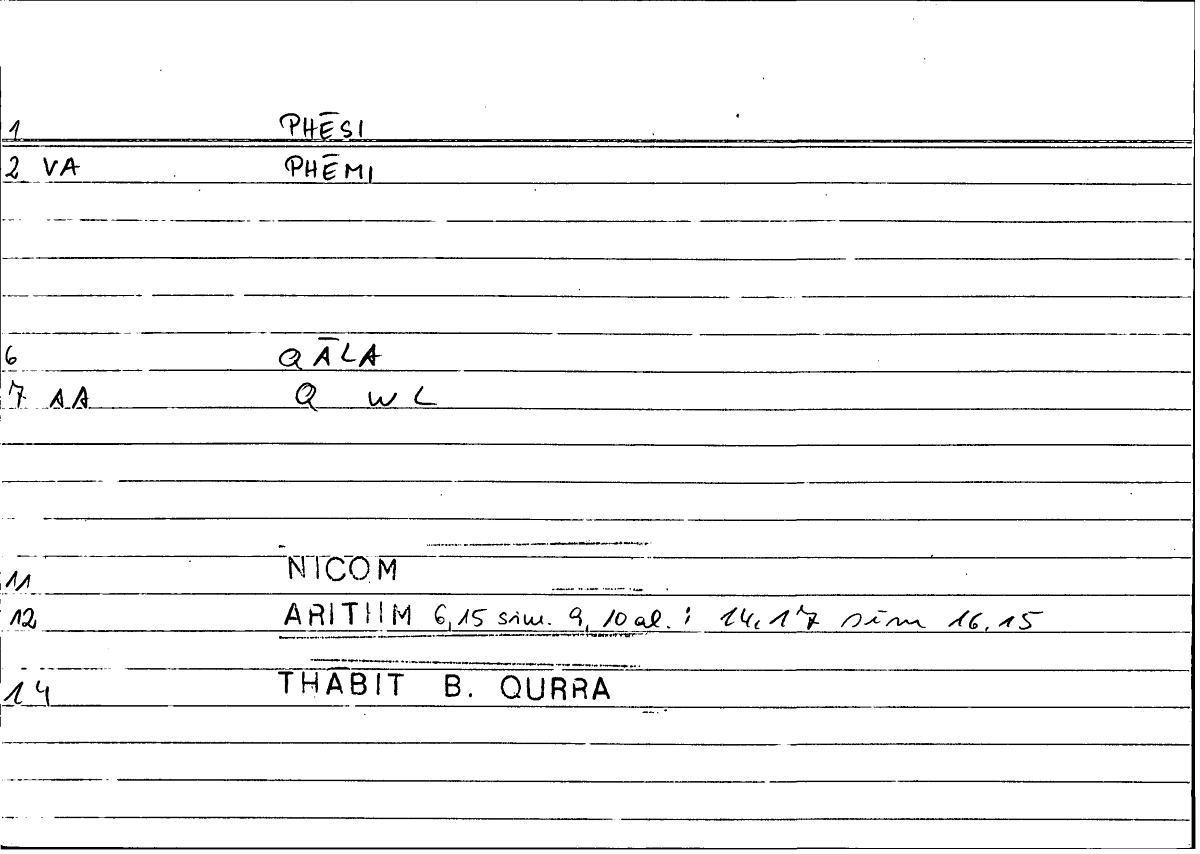 1 PHĒSI
2 VA PHĒMI
6 QĀLA
7 AA Q W L
11 NICOM
12 ARITIIM 6,15 sim. 9,10 al. : 14,17 sim 16.15
14 THABIT B. QURRA